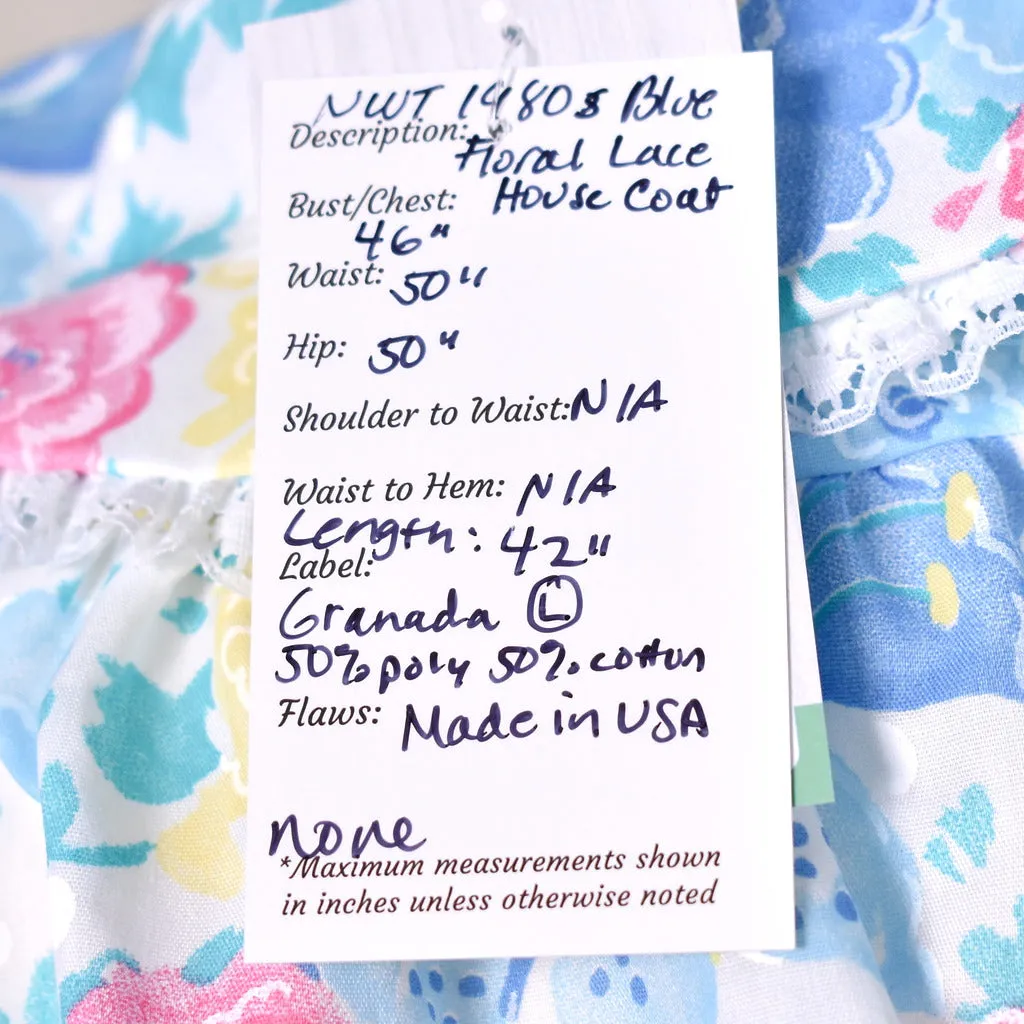 NWT 1980s Blue
Description:
Floral Lace
Bust/Chest: House Coat
46"
Waist: 50"
Hip: 50"
Shoulder to Waist: N/A
Waist to Hem: N/A
Length: 42"
Label:
Granada L
50% poly 50% cotton
Flaws: Made in USA
none
*Maximum measurements shown
in inches unless otherwise noted